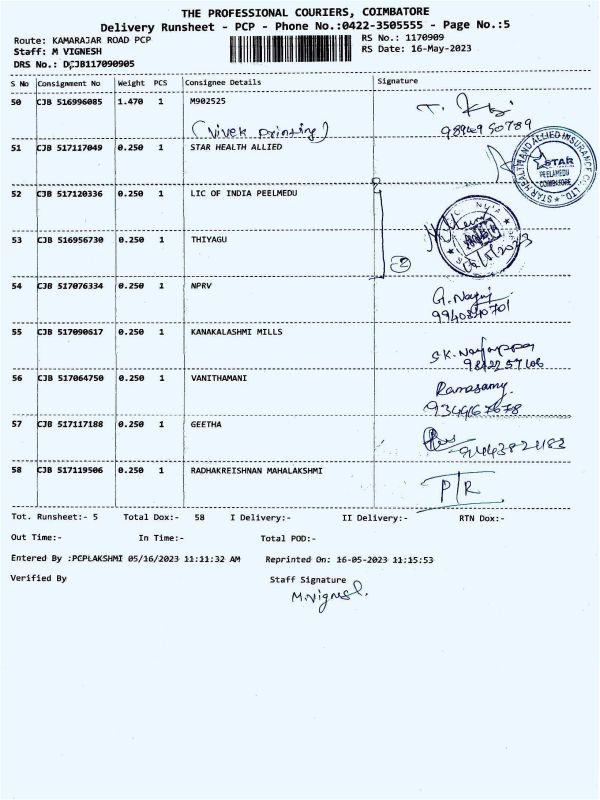 THE PROFESSIONAL COURIERS, COIMBATORE
Delivery Runsheet - PCP - Phone No.:0422-3505555 - Page No.:5
Route: KAMARAJAR ROAD PCP RS No.: 1170909
Staff: M VIGNESH RS Date: 16-May-2023
DRS No.: DCJB117090905
S No Consignment No Weight PCS Consignee Details Signature
50 CJB 516996085 1.470 1 M902525
(Vivek printing) 9894950789
51 CJB 517117049 0.250 1 STAR HEALTH ALLIED
STAR HEALTH AND ALLIED INSURANCE CO. LTD.
STAR
PEELAMEDU
COIMBATORE
52 CJB 517120336 0.250 1 LIC OF INDIA PEELMEDU
53 CJB 516956730 0.250 1 THIYAGU
2
54 CJB 517076334 0.250 1 NPRV
55 CJB 517090617 0.250 1 KANAKALASHMI MILLS
56 CJB 517064750 0.250 1 VANITHAMANI Ramasamy
57 CJB 517117188 0.250 1 GEETHA
58 CJB 517119506 0.250 1 RADHAKREISHNAN MAHALAKSHMI
Tot. Runsheet:- 5 Total Dox:- 58 I Delivery:- II Delivery:- RTN Dox:-
Out Time:- In Time:- Total POD:-
Entered By :PCPLAKSHMI 05/16/2023 11:11:32 AM Reprinted On: 16-05-2023 11:15:53
Verified By Staff Signature
M.Vignesh.